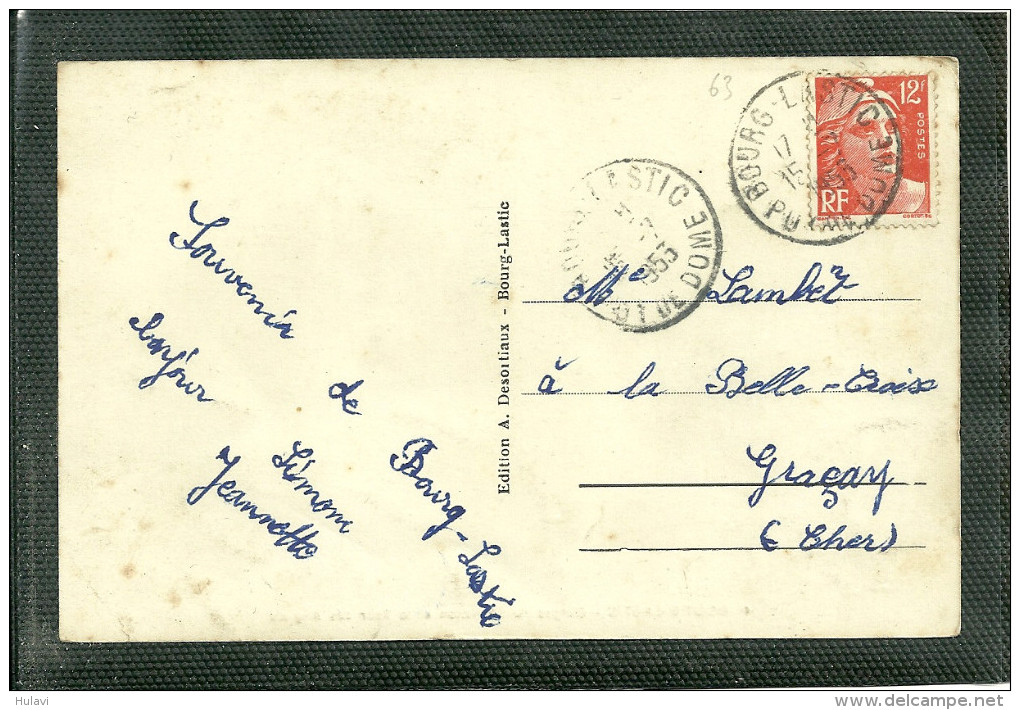 63
12F
POSTES
RF
BOURG-LASTIC
PUY DE DOME
LASTIC
DE DOME
Souvenir de Bourg-Lastic
bonjour
Simone
Jeannette
Edition A. Desortiaux - Bourg-Lastic
Me Lambet
à la Belle-Croix
Graçay
(Cher)
Hulavi
www.delcampe.net